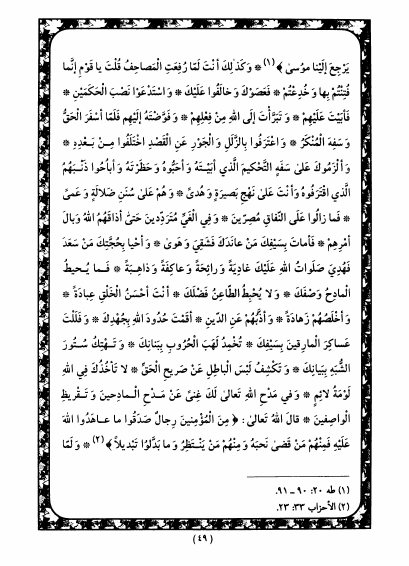 يَرْجِعَ إِلَيْنا مُوسىٰ ﴾(١) * وَكَذٰلِكَ أَنْتَ لَمّا رُفِعَتِ الْمَصاحِفُ قُلْتَ يا قَوْمِ إِنَّما
فُتِنْتُمْ بِها وَخُدِعْتُمْ * فَعَصَوْكَ وَخالَفُوا عَلَيْكَ * وَاسْتَدْعَوْا نَصْبَ الْحَكَمَيْنِ *
فَأَبَيْتَ عَلَيْهِمْ * وَتَبَرَّأْتَ إِلَى اللهِ مِنْ فِعْلِهِمْ * وَفَوَّضْتَهُ إِلَيْهِم فَلَمّا أَسْفَرَ الْحَقُّ
وَسَفِهَ الْمُنْكَرُ * وَاعْتَرَفُوا بِالزَّلَلِ وَالْجَوْرِ عَنِ الْقَصْدِ اخْتَلَفُوا مِنْ بَعْدِهِ *
وَأَلْزَمُوكَ عَلىٰ سَفَهِ التَّحْكِيمَ الَّذي أَبَيْتَهُ وَأَحَبُّوهُ وَحَظَرْتَهُ وَأَباحُوا ذَنْبَهُمُ
الَّذي اقْتَرَفُوهُ وَأَنْتَ عَلىٰ نَهْجِ بَصِيرَةٍ وَهُدىً * وَهُمْ عَلىٰ سُنَنِ ضَلالَةٍ وَعَمىً
* فَما زالُوا عَلَى النِّفاقِ مُصِرّينَ * وَفِي الْغَيِّ مُتَرَدِّدينَ حَتىٰ أَذاقَهُمُ اللهُ وَبالَ
أَمْرِهِمْ * فَأَماتَ بِسَيْفِكَ مَنْ عانَدَكَ فَشَقِيَ وَهَوىٰ * وَأَحْيا بِحُجَّتِكَ مَنْ سَعَدَ
فَهُدِيَ صَلَواتُ اللهِ عَلَيْكَ غادِيَةً وَرائِحَةً وَعاكِفَةً وَذاهِبَةً * فَما يُحيطُ
الْمادِحُ وَصْفَكَ * وَلا يُحْبِطُ الطّاعِنُ فَضْلَكَ * أَنْتَ أَحْسَنُ الْخَلْقِ عِبادَةً *
وَأَخْلَصُهُمْ زَهادَةً * وَأَذَبُّهُمْ عَنِ الدّينِ * أَقَمْتَ حُدُودَ اللهِ بِجُهْدِكَ * وَفَلَلْتَ
عَساكِرَ الْمارِقينَ بِسَيْفِكَ * تُخْمِدُ لَهَبَ الْحُرُوبِ بِبَنانِكَ * وَتَهْتِكُ سُتُورَ
الشُّبَهِ بِبَيانِكَ * وَتَكْشِفُ لَبْسَ الْباطِلِ عَنْ صَريحِ الْحَقِّ * لا تَأْخُذُكَ فِي اللهِ
لَوْمَةُ لائِمٍ * وَفي مَدْحِ اللهِ تَعالىٰ لَكَ غِنىً عَنْ مَدْحِ الْمادِحينَ وَتَقْريظِ
الْواصِفينَ * قالَ اللهُ تَعالىٰ : ﴿ مِنَ الْمُؤْمِنينَ رِجالٌ صَدَقُوا ما عاهَدُوا اللهَ
عَلَيْهِ فَمِنْهُمْ مَنْ قَضىٰ نَحْبَهُ وَمِنْهُمْ مَنْ يَنْتَظِرُ وَما بَدَّلُوا تَبْديلاً ﴾(٢) * وَلَمّا
(١) طه ٢٠: ٩٠ ـ ٩١.
(٢) الأحزاب ٣٣: ٢٣.
(٤٩)